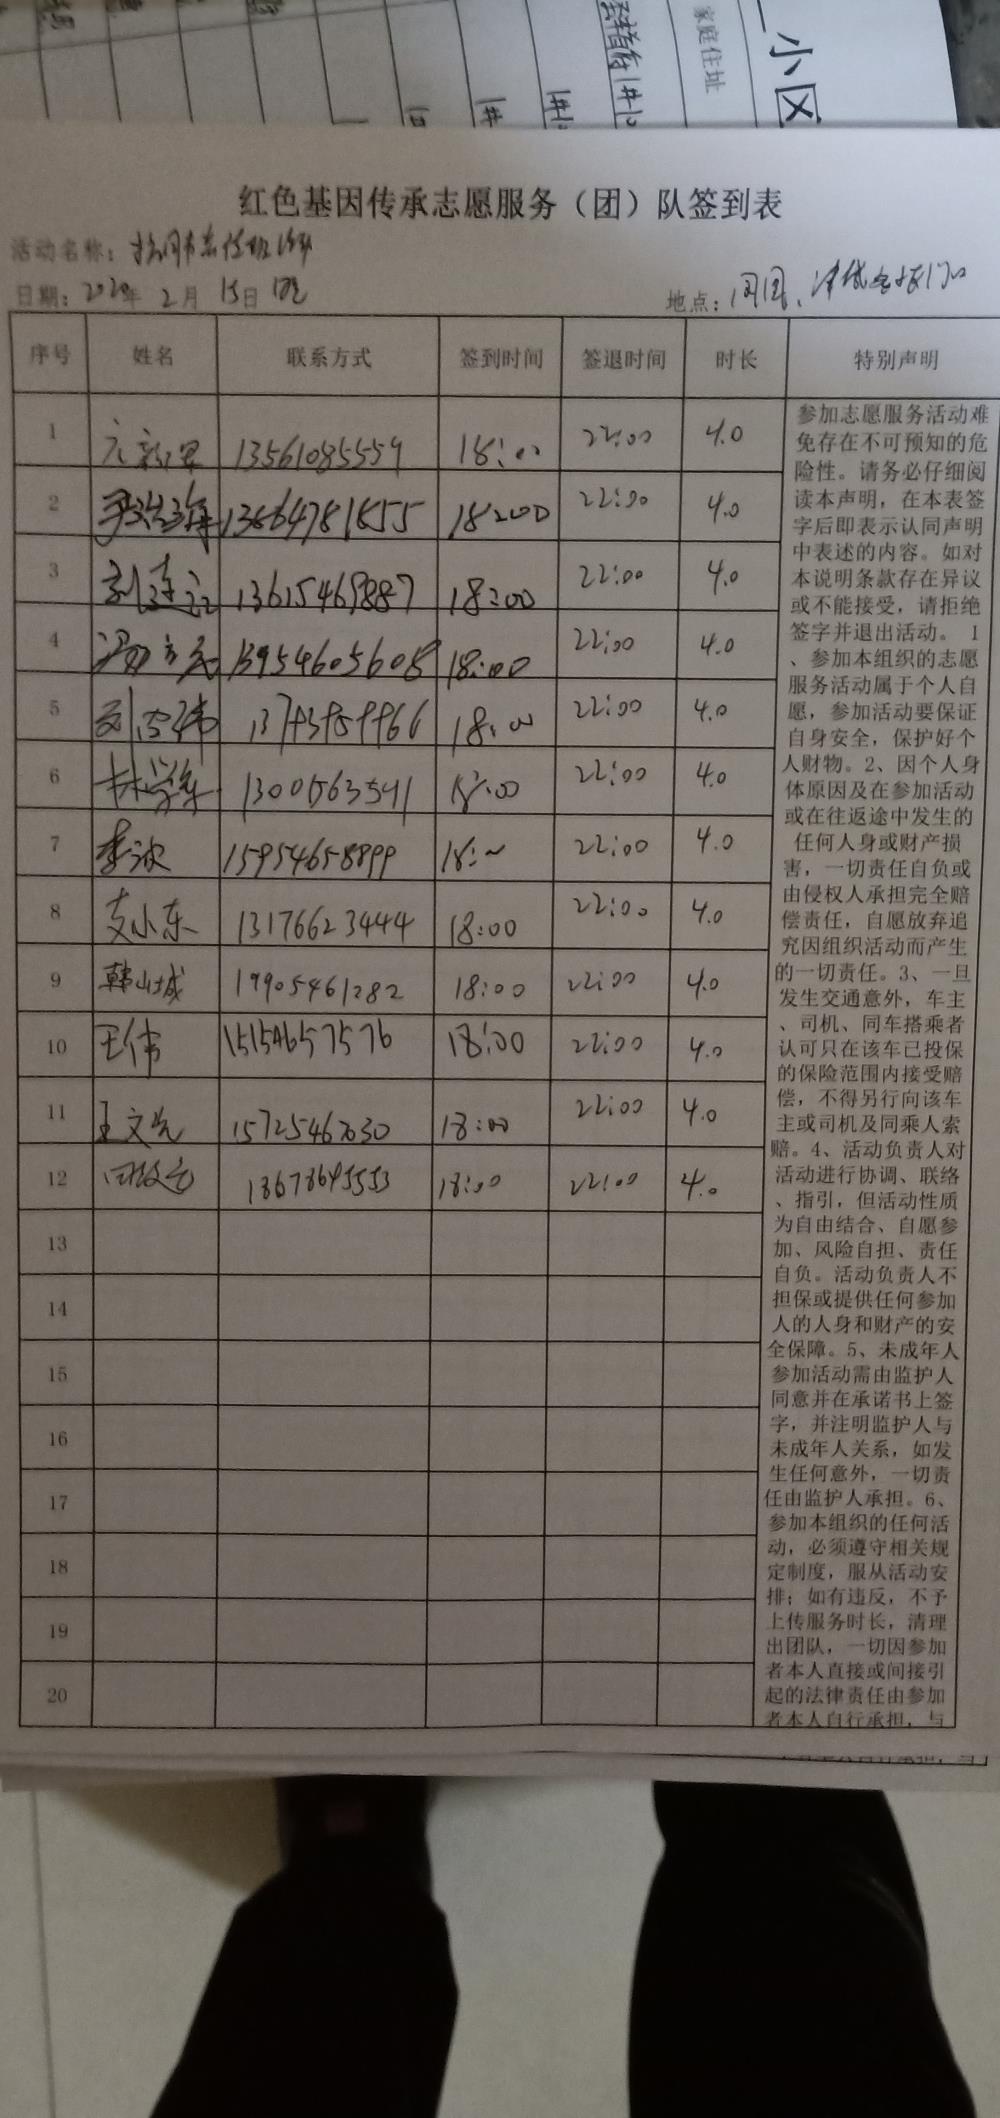 家庭住址
小区
红色基因传承志愿服务（团）队签到表
活动名称：
日期：2020年 2月 15日
地点：
序号 姓名 联系方式 签到时间 签退时间 时长 特别声明
1 13561085559 18:00 22:00 4.0
2 13864781855 18:00 22:00 4.0
3 13615469887 18:00 22:00 4.0
4 13954605608 18:00 22:00 4.0
5 18:00 22:00 4.0
6 林学军 13001563541 18:00 22:00 4.0
7 李波 15954658899 18: 22:00 4.0
8 支小东 13176623444 18:00 22:00 4.0
9 韩山城 19905461282 18:00 22:00 4.0
10 王伟 15154657576 18:00 22:00 4.0
11 王文光 18:00 22:00 4.0
12 18:00 22:00 4.0
13
14
15
16
17
18
19
20
参加志愿服务活动难
免存在不可预知的危
险性。请务必仔细阅
读本声明，在本表签
字后即表示认同声明
中表述的内容。如对
本说明条款存在异议
或不能接受，请拒绝
签字并退出活动。 1
、参加本组织的志愿
服务活动属于个人自
愿，参加活动要保证
自身安全，保护好个
人财物。2、因个人身
体原因及在参加活动
或在往返途中发生的
任何人身或财产损
害，一切责任自负或
由侵权人承担完全赔
偿责任，自愿放弃追
究因组织活动而产生
的一切责任。3、一旦
发生交通意外，车主
、司机、同车搭乘者
认可只在该车已投保
的保险范围内接受赔
偿，不得另行向该车
主或司机及同乘人索
赔。4、活动负责人对
活动进行协调、联络
、指引，但活动性质
为自由结合、自愿参
加、风险自担、责任
自负。活动负责人不
担保或提供任何参加
人的人身和财产的安
全保障。5、未成年人
参加活动需由监护人
同意并在承诺书上签
字，并注明监护人与
未成年人关系，如发
生任何意外，一切责
任由监护人承担。6、
参加本组织的任何活
动，必须遵守相关规
定制度，服从活动安
排；如有违反，不予
上传服务时长，清理
出团队，一切因参加
者本人直接或间接引
起的法律责任由参加
者本人自行承担，与